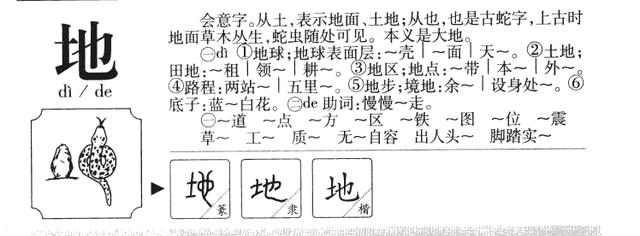 地
dì / de
会意字。从土，表示地面、土地；从也，也是古蛇字，上古时
地面草木丛生，蛇虫随处可见。本义是大地。
㊀dì ①地球；地球表面层：～壳｜～面｜天～。②土地；
田地：～租｜领～｜耕～。③地区；地点：～带｜本～｜外～。
④路程：两站～｜五里～。⑤地步；境地：余～｜设身处～。⑥
底子：蓝～白花。㊁de 助词：慢慢～走。
㊀～道 ～点 ～方 ～区 ～铁 ～图 ～位 ～震
草～ 工～ 质～ 无～自容 出人头～ 脚踏实～
地 篆
地 隶
地 楷